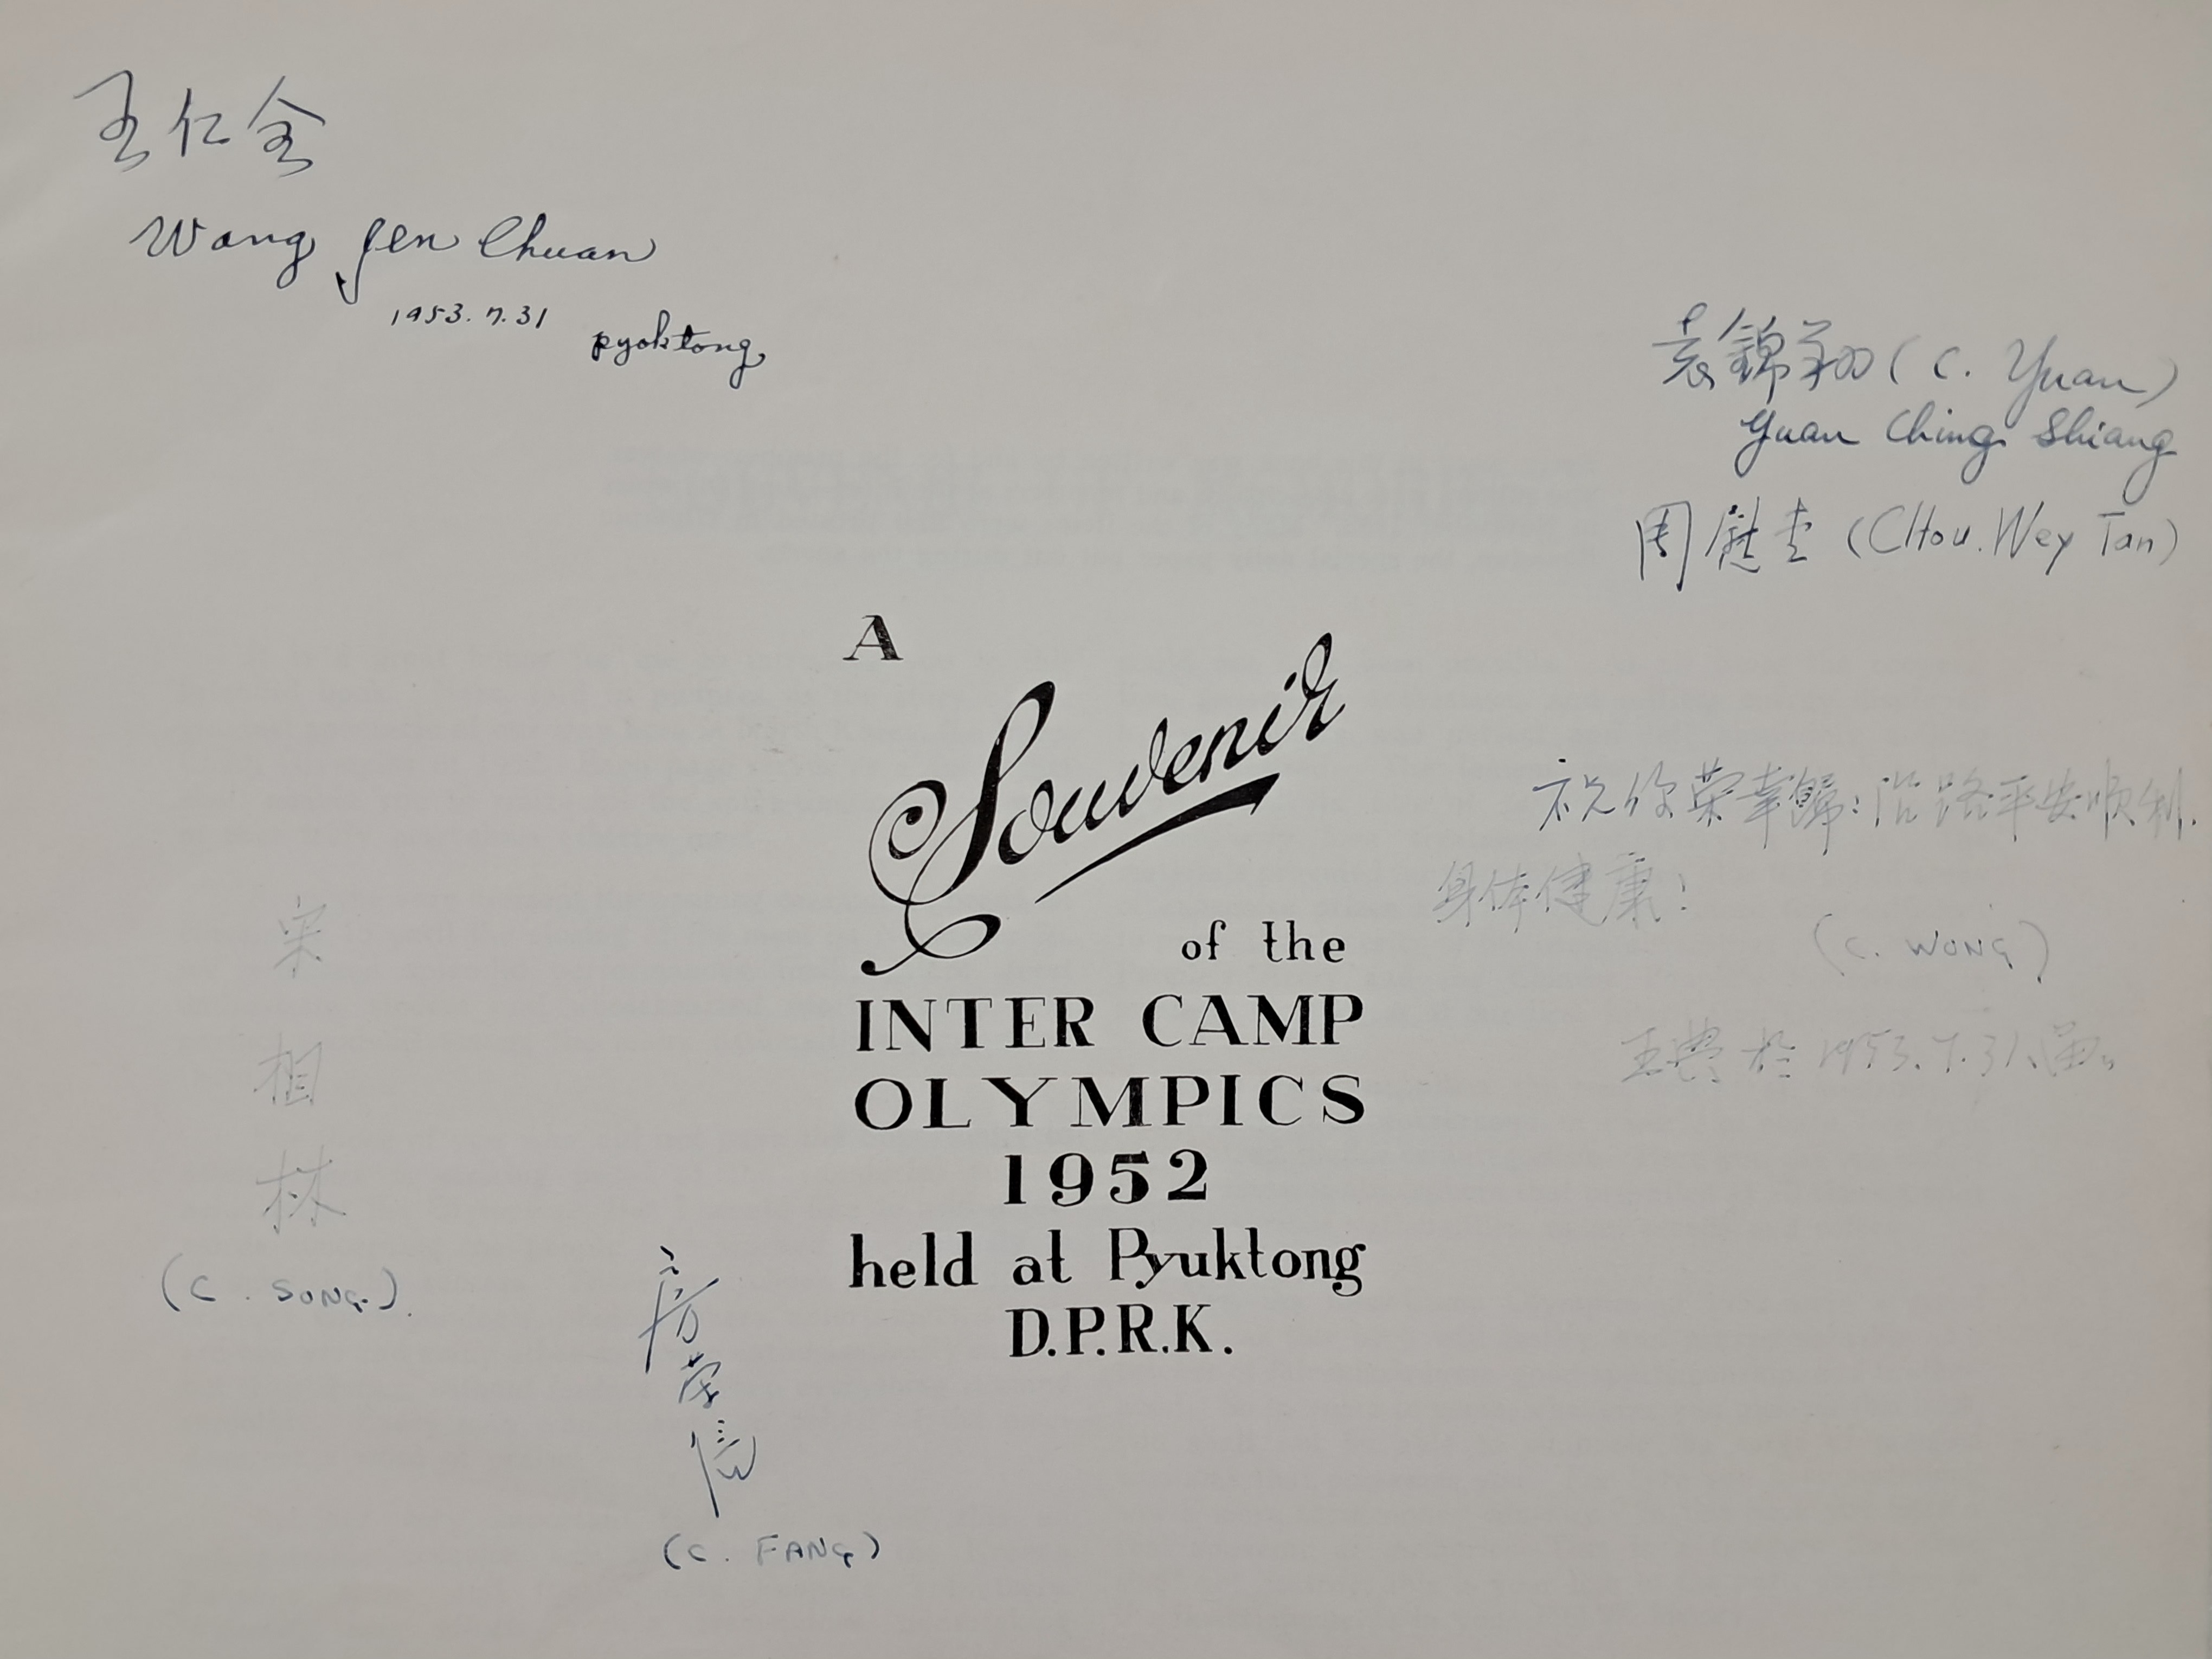 王仁全
Wang Jen Chuan
1953.7.31
pyoktong
袁錦翔 (C. Yuan)
Yuan Ching Shiang
周慰 (CHou. Wey Tan)
A
Souvenir
of the
INTER CAMP
OLYMPICS
1952
held at Pyuktong
D.P.R.K.
祝你荣幸歸!沿路平安顺利.
身体健康!
(C. WONG)
王 於 1953.7.31
宋
相
林
(C. SONG).
房
荣
信
(C. FANG)